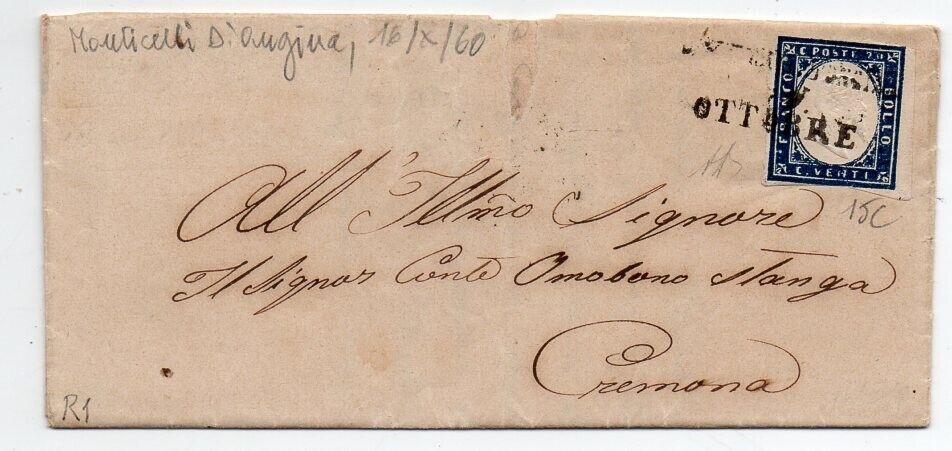 Monticelli D'Ongina, 16/X/60
OTTOBRE
C. POSTE 20
FRANCO
BOLLO
C. VENTI
15C
All' Illmo Signore
Il Signor Conte Omobono Stanga
Cremona
R1